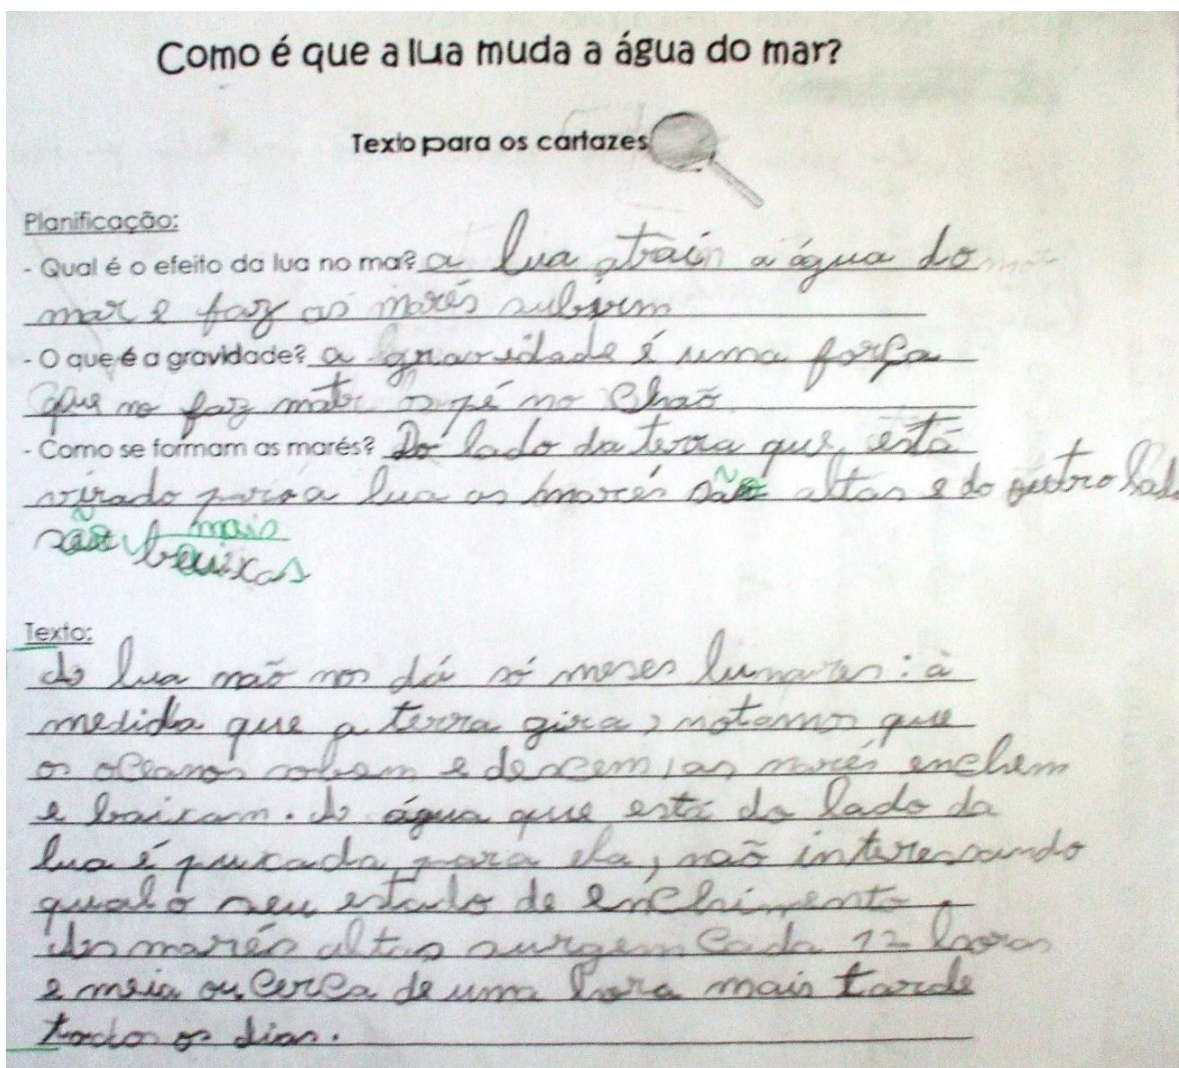 Como é que a lua muda a água do mar?
Texto para os cartazes
Planificação:
- Qual é o efeito da lua no mar? a lua atrai a água do
mar e faz as marés subirem
- O que é a gravidade? a gravidade é uma força
que no faz mater os pé no chão
- Como se formam as marés? Do lado da terra que está
virado para a lua as marés são altas e do outro lado
são mais baixas
Texto:
A lua não nos dá só meses lunares: à
medida que a terra gira, notamos que
os oceanos sobem e descem, as marés enchem
e baixam. A água que está do lado da
lua é puxada para ela, não interessando
qual o seu estado de enchimento.
As marés altas surgem cada 12 horas
e meia ou cerca de uma hora mais tarde
todos os dias.